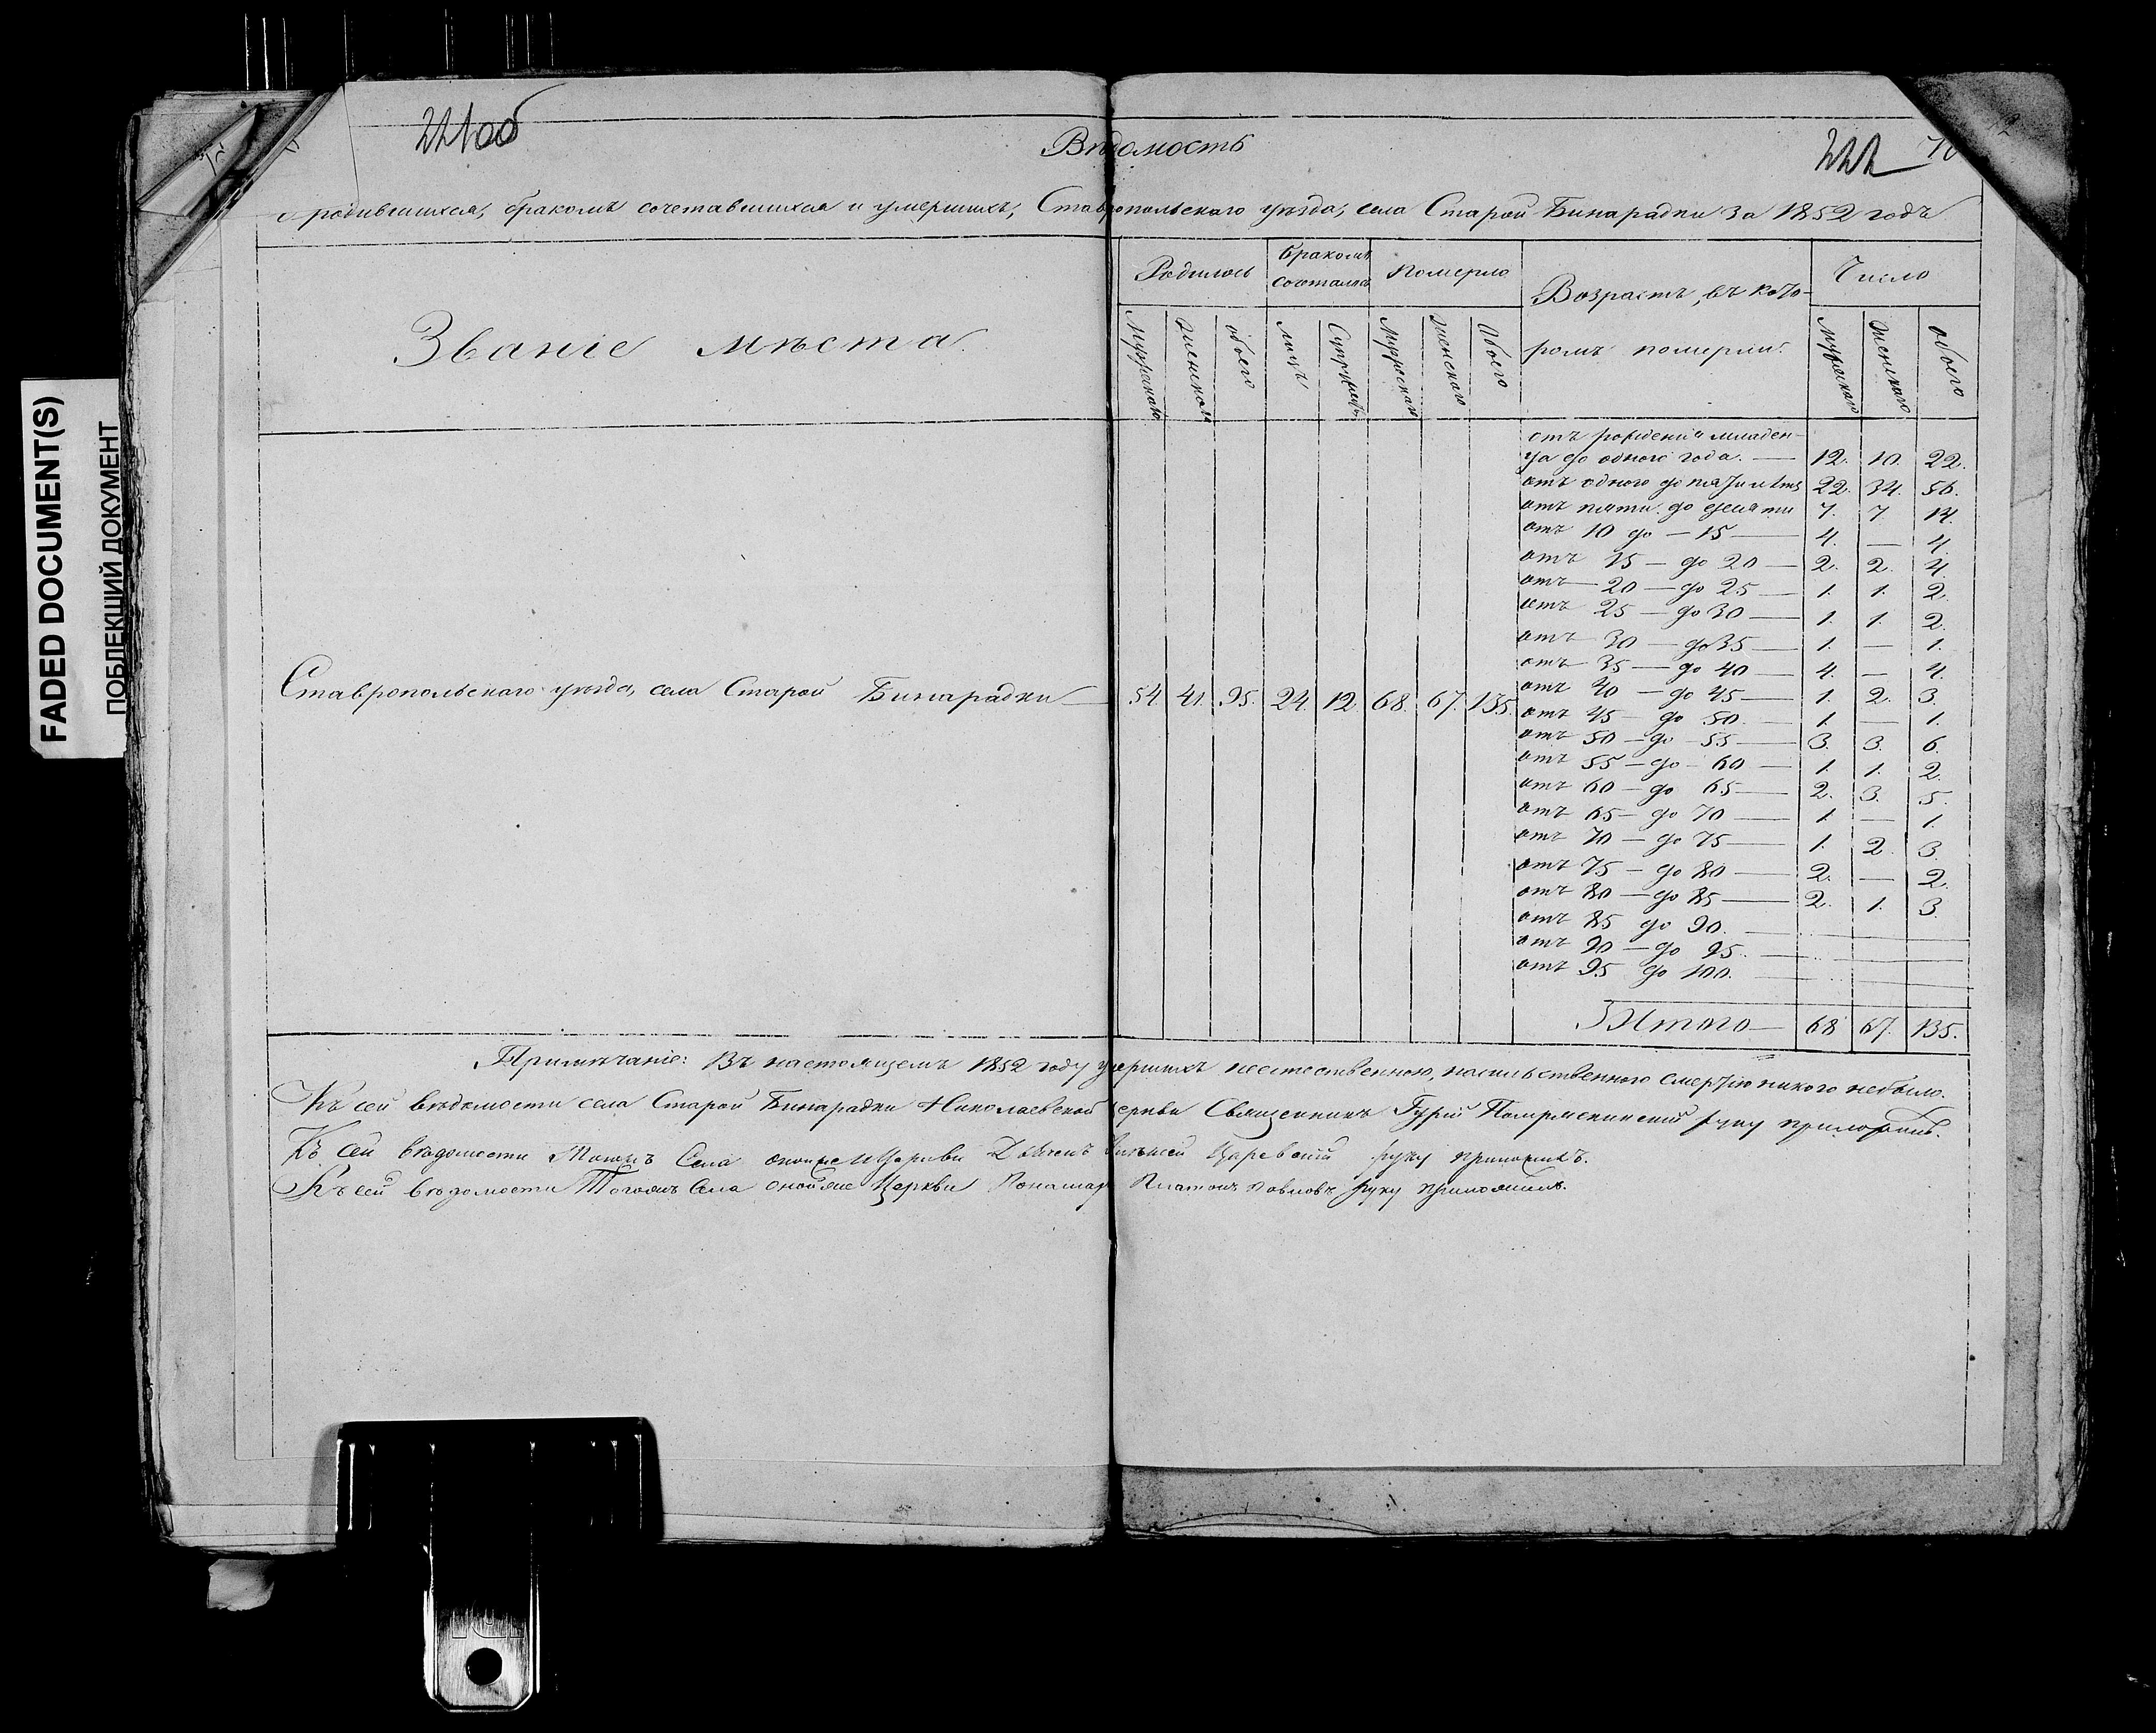 221об
Вѣдомость
222
о родившихся, бракомъ сочетавшихся и умершихъ, Ставропольскаго уѣзда, села Старой Бинарадки за 1852 годъ
Званіе мѣста.
Родилось
бракомъ сочеталось
Померло
Возрастъ, въ кото-
ромъ померли.
Число
Мужескаго
Женскаго
обоего
лицъ
Супружествъ
Мужескаго
Женскаго
Обоего
Мужескаго
Женскаго
обоего
отъ рожденія младен-
ца до одного года. — 12. 10. 22.
отъ одного до пяти лѣтъ 22. 34. 56.
отъ пяти до десяти 7. 7. 14.
отъ 10 до — 15 — 4. — 4.
отъ 15 — до 20 — 2. 2. 4.
отъ — 20 — до 25 — 1. 1. 2.
отъ 25 — до 30 — 1. 1. 2.
отъ 30 — до 35 — 1. — 1.
отъ 35 — до 40 — 4. — 4.
Ставропольскаго уѣзда, села Старой Бинарадки — 54. 41. 95. 24. 12. 68. 67. 135.
отъ 40 — до 45 — 1. 2. 3.
отъ 45 — до 50. — 1. — 1.
отъ 50 — до — 55 — 3. 3. 6.
отъ 55 — до — 60 — 1. 1. 2.
отъ 60 — до 65 — 2. 3. 5.
отъ 65 — до 70 — 1. — 1.
отъ 70 — до 75 — 1. 2. 3.
отъ 75 — до 80 — 2. — 2.
отъ 80 — до 85 — 2. 1. 3.
отъ 85 до 90. —
отъ 90 — до 95. —
отъ 95 до 100. —
Итого — 68 67. 135.
Примѣчаніе: Въ настоящемъ 1852 году умершихъ неестественною, насильственною смертію никого небыло.
Къ сей вѣдомости села Старой Бинарадки Николаевской церкви Священникъ Гурій руку приложилъ.
Къ сей вѣдомости Тогожъ Села оной же Церкви Царевскій руку приложилъ.
Къ сей вѣдомости Тогожъ Села оной же Церкви Пономарь Платонъ Павловъ руку приложилъ.
FADED DOCUMENT(S)
ПОБЛЕКШИЙ ДОКУМЕНТ